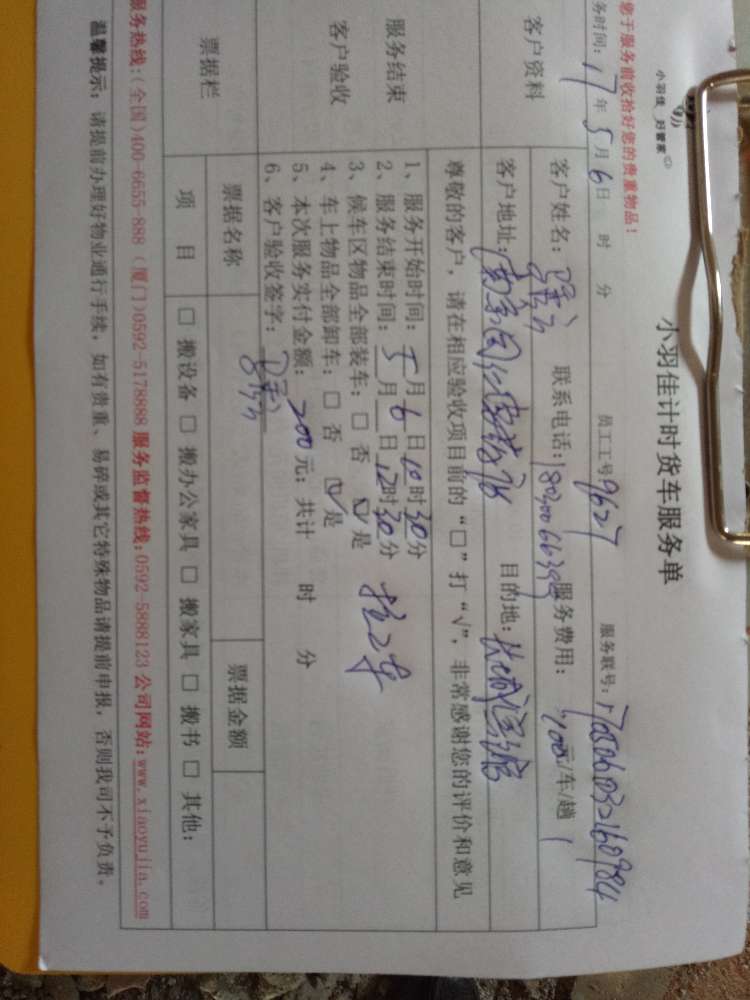 小羽佳 好管家
小羽佳计时货车服务单
您于服务前收拾好您的贵重物品！
务时间：17年5月6日 时 分 员工工号9627 服务联号：
客户资料
客户姓名： 联系电话： 服务费用： 元/车/趟
客户地址： 目的地：
尊敬的客户，请在相应验收项目前的“□”打“√”，非常感谢您的评价和意见
服务结束
客户验收
1、服务开始时间：5月6日10时30分
2、服务结束时间：5月6日12时30分
3、候车区物品全部装车：□ 否 ☑ 是
4、车上物品全部卸车：□ 否 ☑ 是
5、本次服务实付金额：200元；共计 时 分
6、客户验收签字：
票据栏
票据名称 票据金额
项 目 □ 搬设备 □ 搬办公家具 □ 搬家具 □ 搬书 □ 其他：
服务热线：(全国)400-6655-888 (厦门)0592-5178888 服务监督热线：0592-5888123 公司网站：www.xiaoyujia.com
温馨提示：请提前办理好物业通行手续，如有贵重、易碎或其它特殊物品请提前申报，否则我司不予负责。